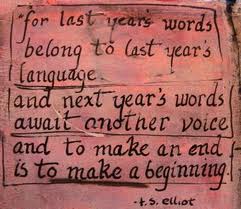 "for last year's words
belong to last year's
language
and next year's words
await another voice
and to make an end
is to make a beginning.
-t.s. elliot